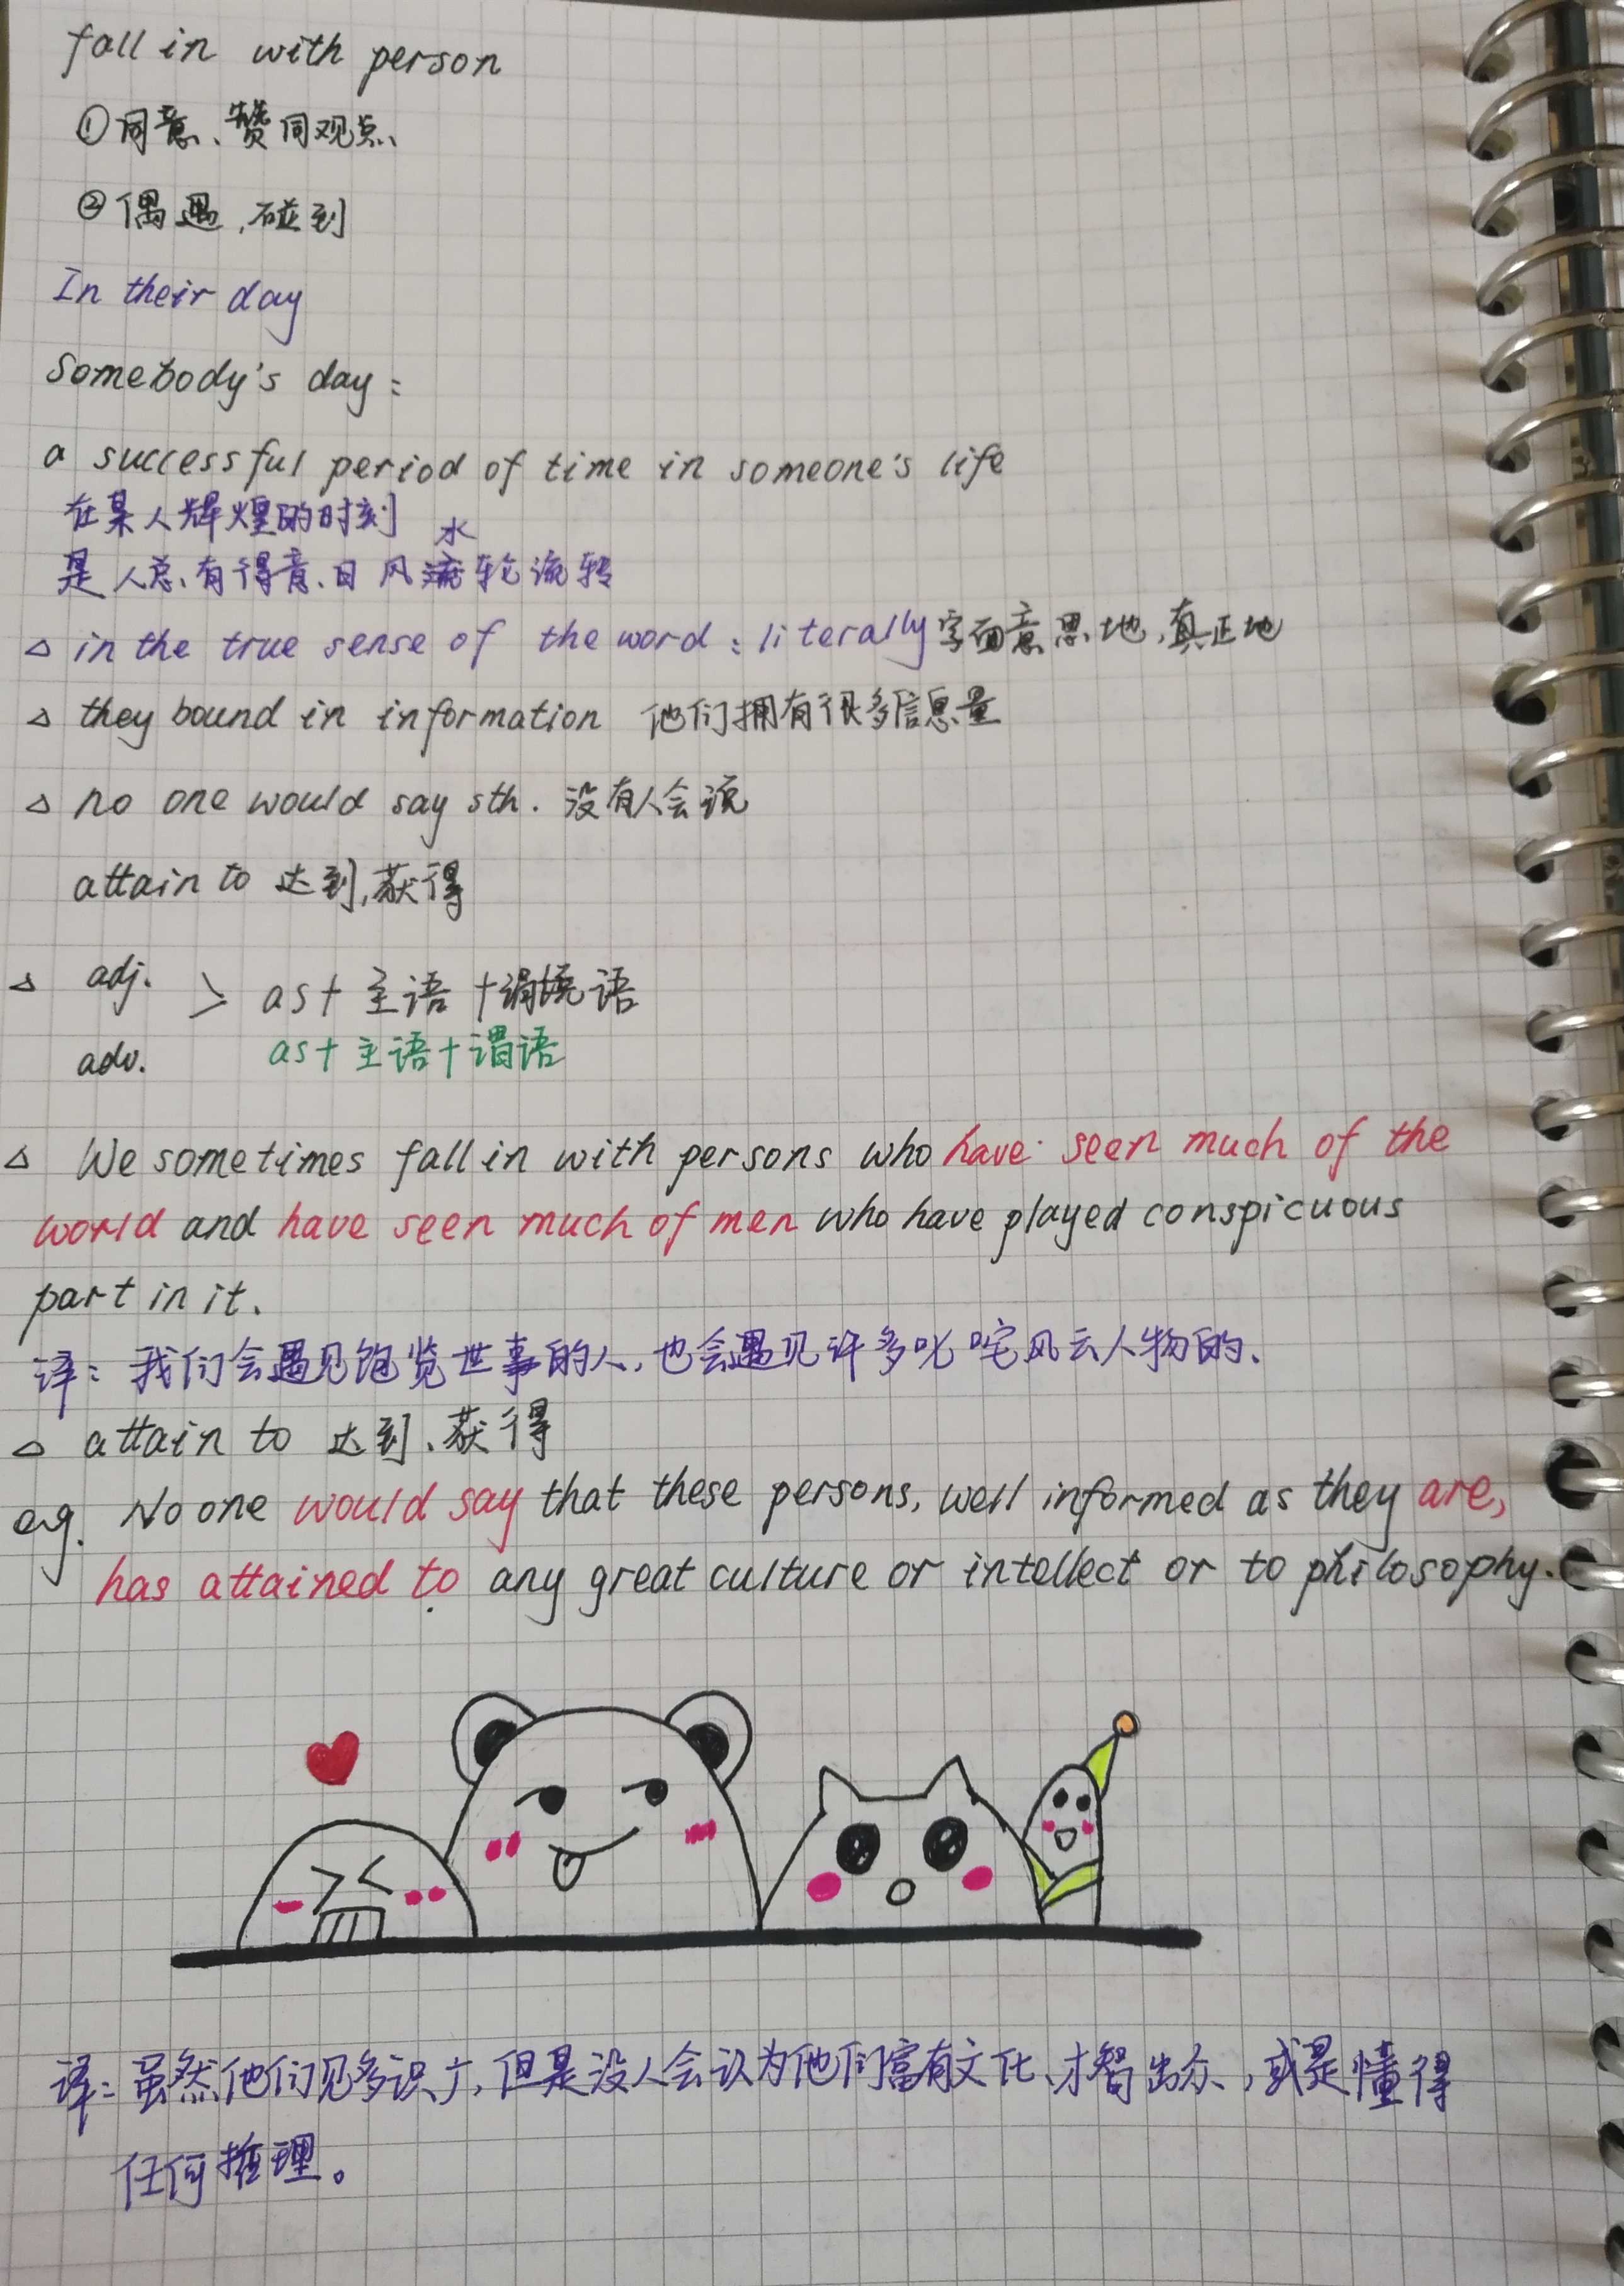 fall in with person
①同意、赞同观点
②偶遇,碰到
In their day
Somebody's day:
a successful period of time in someone's life
在某人辉煌的时刻
水
是人总有得意日 风流轮流转
△ in the true sense of the word : literally 字面意思地,真正地
△ they bound in information 他们拥有很多信息量
△ no one would say sth. 没有人会说
attain to 达到,获得
△ adj. > as + 主语 + 语
adv. as + 主语 + 谓语
△ We sometimes fall in with persons who have seen much of the
world and have seen much of men who have played conspicuous
part in it.
译: 我们会遇见饱览世事的人,也会遇见许多叱咤风云人物的.
△ attain to 达到、获得
e.g. No one would say that these persons, well informed as they are,
has attained to any great culture or intellect or to philosophy.
译: 虽然他们见多识广,但是没人会认为他们富有文化、才智出众,或是懂得
任何推理。